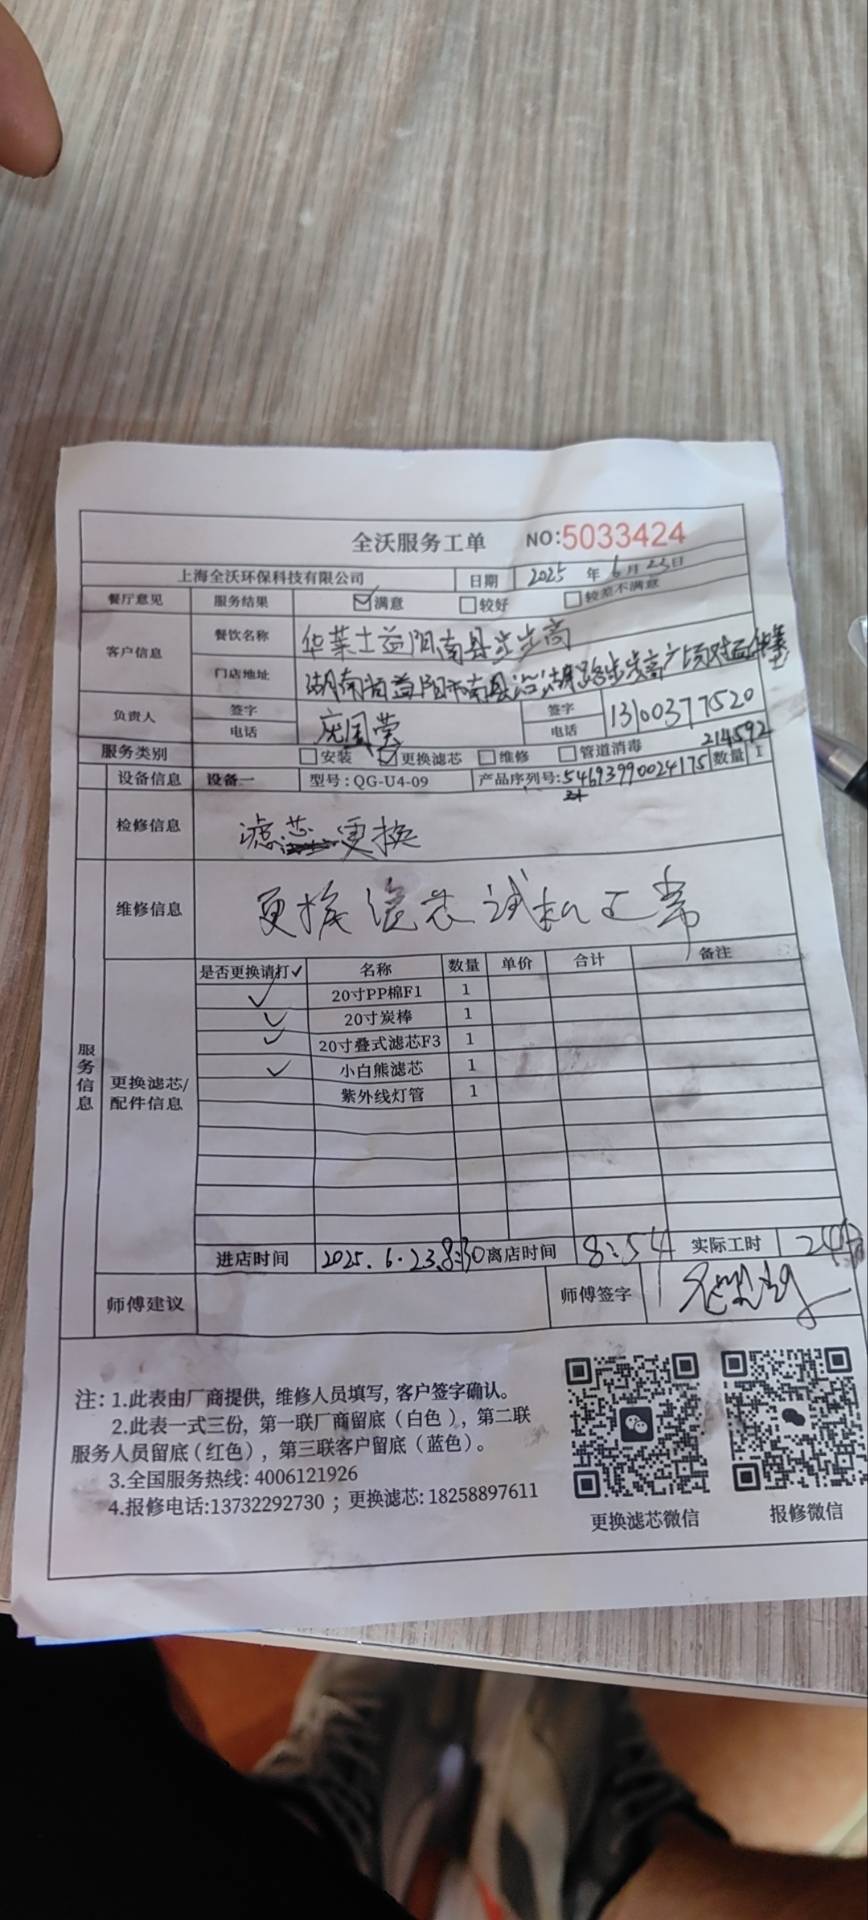 全沃服务工单 NO:5033424
上海全沃环保科技有限公司 日期 2025 年 6 月 23 日
餐厅意见 服务结果 满意 较好 较差不满意
客户信息 餐饮名称 华莱士益阳南县步步高
门店地址 湖南省益阳市南县 路步步高广场对面华莱士
负责人 签字 签字
电话 电话 13100377520
服务类别 安装 更换滤芯 维修 管道消毒 214592
设备信息 设备一 型号:QG-U4-09 产品序列号:54693990024175 数量 1
检修信息 滤芯更换
维修信息 更换滤芯试机正常
服务信息
更换滤芯/
配件信息
是否更换请打✓ 名称 数量 单价 合计 备注
✓ 20寸PP棉F1 1
✓ 20寸炭棒 1
✓ 20寸叠式滤芯F3 1
✓ 小白熊滤芯 1
紫外线灯管 1
进店时间 2025.6.23.8:30 离店时间 8:54 实际工时
师傅建议 师傅签字
注: 1.此表由厂商提供, 维修人员填写, 客户签字确认。
2.此表一式三份, 第一联厂商留底(白色), 第二联
服务人员留底(红色), 第三联客户留底(蓝色)。
3.全国服务热线: 4006121926
4.报修电话:13732292730 ; 更换滤芯: 18258897611
更换滤芯微信 报修微信